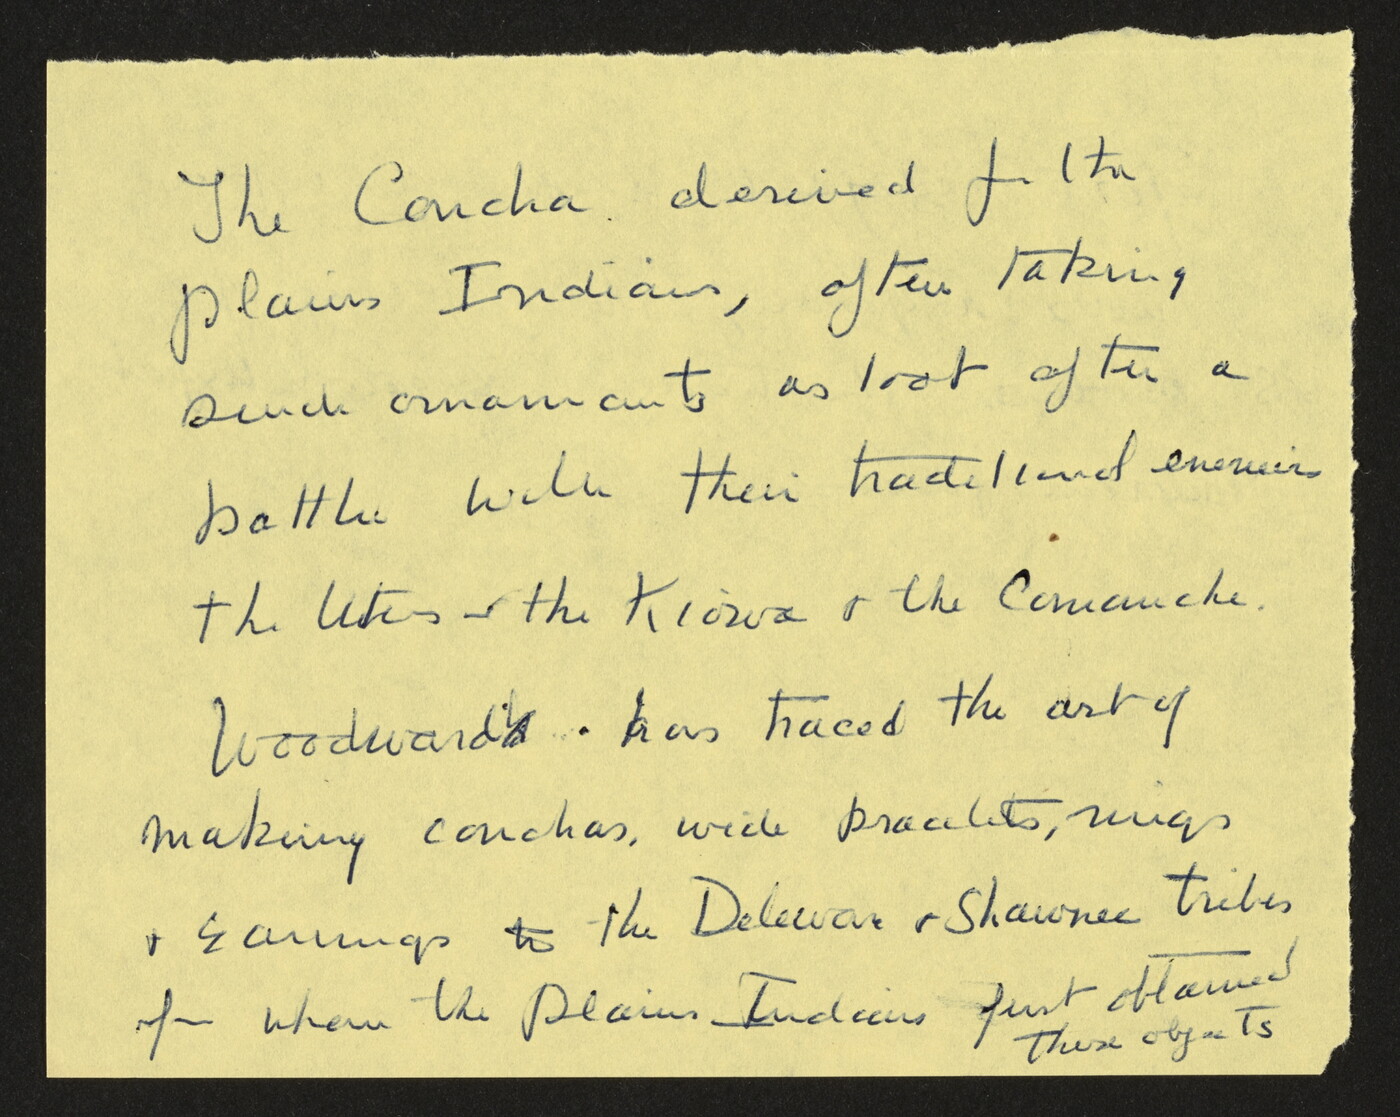 The Concha derived fr the
plains Indians, often taking
such ornaments as loot after a
battle with their traditional enemies
the Utes & the Kiowa & the Comanche.
Woodward has traced the art of
making conchas, wide bracelets, rings
& Earrings to the Delewar & Shawnee tribes
fr whom the plains Indians first obtained
these objects